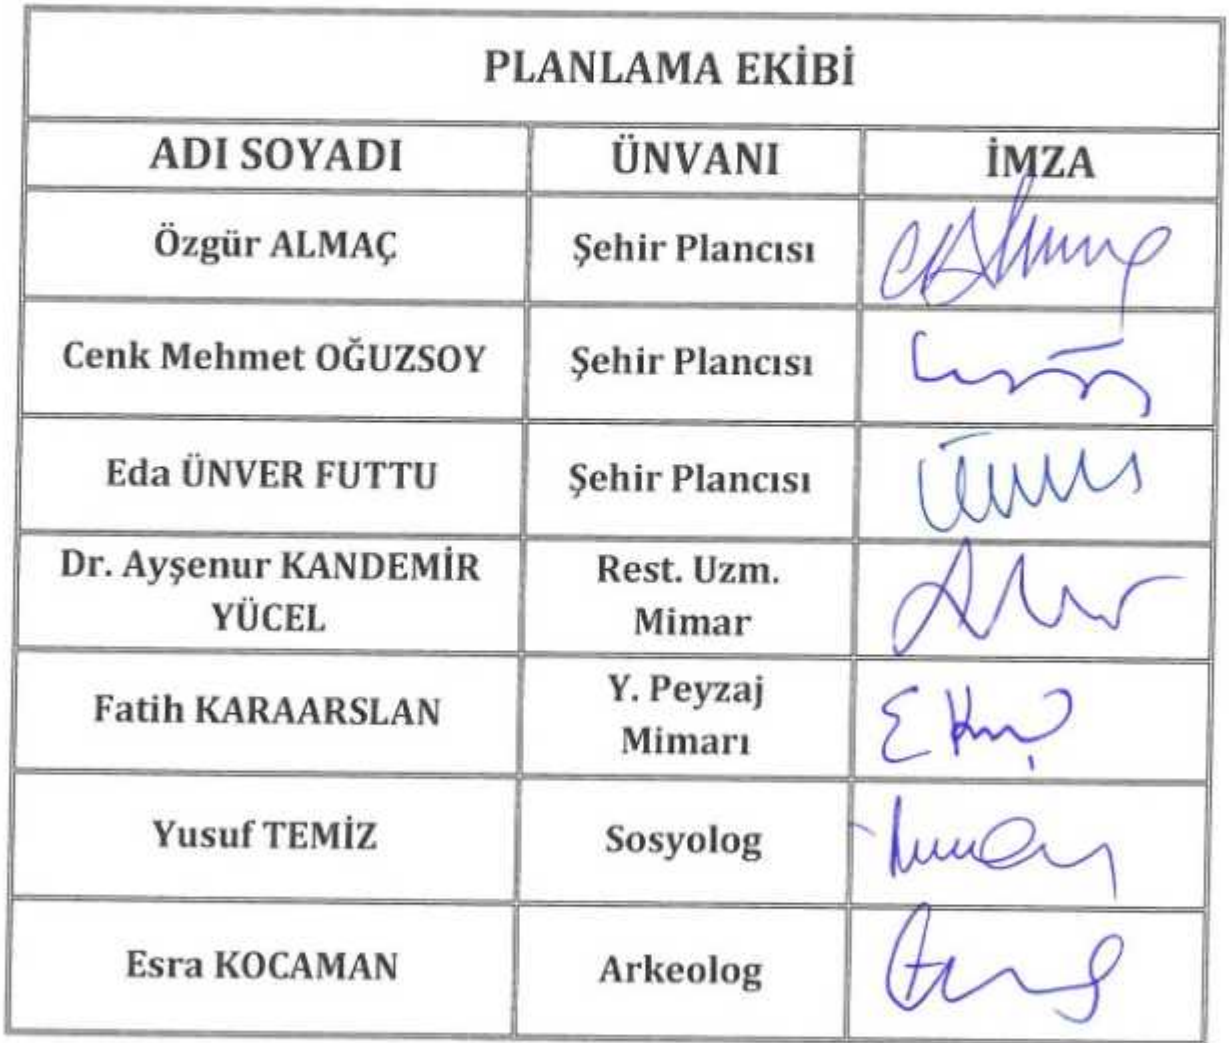 PLANLAMA EKİBİ
ADI SOYADI ÜNVANI İMZA
Özgür ALMAÇ Şehir Plancısı
Cenk Mehmet OĞUZSOY Şehir Plancısı
Eda ÜNVER FUTTU Şehir Plancısı
Dr. Ayşenur KANDEMİR Rest. Uzm.
YÜCEL Mimar
Fatih KARAARSLAN Y. Peyzaj
Mimarı
Yusuf TEMİZ Sosyolog
Esra KOCAMAN Arkeolog